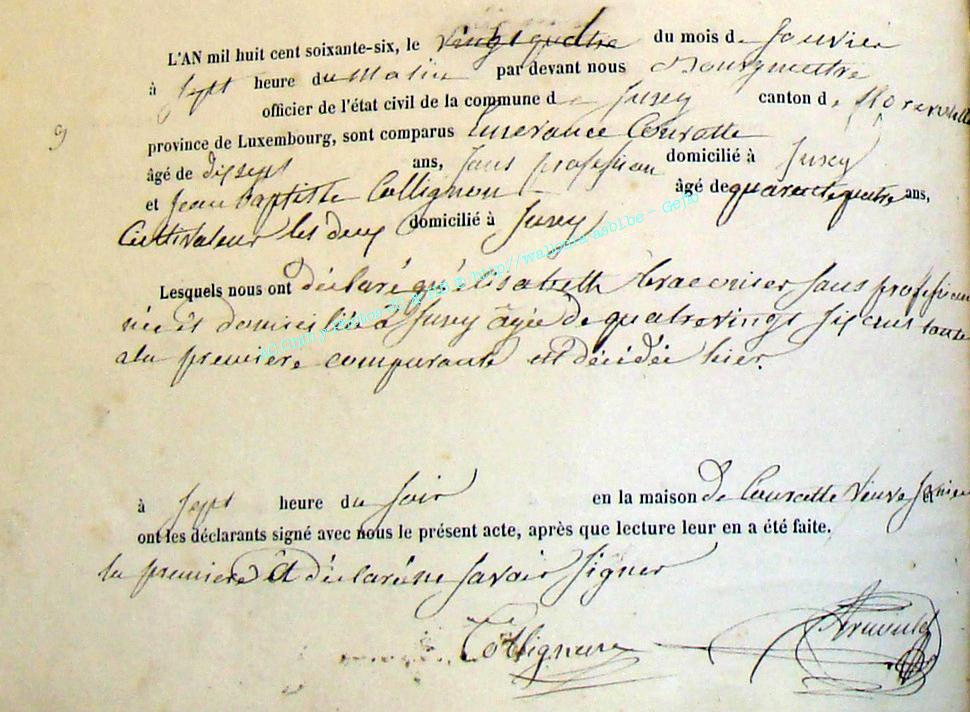 L'AN mil huit cent soixante-six, le vingt quatre du mois de Janvier
à Sept heure du Matin par devant nous Bourgmettre
officier de l'état civil de la commune de Jusey canton de
9
province de Luxembourg, sont comparus Courotte
âgé de dixsept ans, Sans profession domicilié à Jusey
et Jean Baptiste Collignon âgé de quarentequatre ans,
Cultivateur les deux domicilié à Jusey
Lesquels nous ont déclaré qu'élisabeth sans profession
née et domiciliée à Jusey âgée de quatrevingt six ans tante
a la première comparante est décédée hier.
à Sept heure du Soir en la maison de Courotte Veuve
ont les déclarants signé avec nous le présent acte, après que lecture leur en a été faite.
la première a déclaré ne savoir signer
Collignon
http://wallonia-asbl.be - Ge